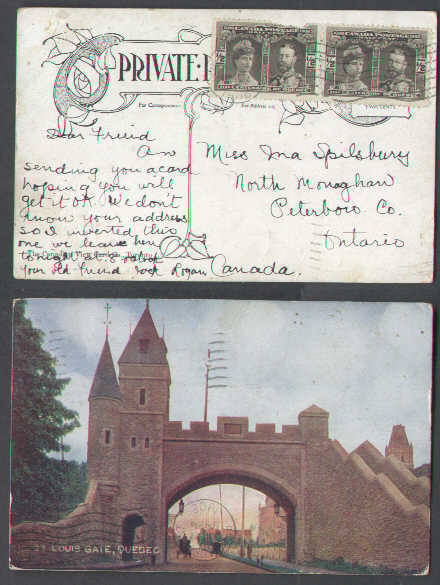 PRIVATE
For Correspondence
For Address only
CANADA POSTAGE CANADA POSTAGE
Dear Friend
Am
sending you a card
hoping you will
get it ok. We don't
know your address
so I invented this
one we leave here
tonight at 8 o'clock
your old friend Jack Rogan
Miss Ina Spilsbury
North Monaghan
Peterboro Co.
Ontario
Canada.
ST LOUIS GATE, QUEBEC